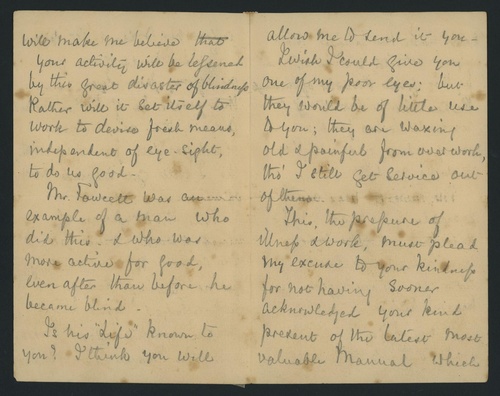 will make me believe that
your activity will be lessened
by this great disaster of blindness
Rather will it set itself to
work to devise fresh means,
independent of eye-sight,
to do us good.
Mr. Fawcett was an
example of a man who
did this. & who was
more active for good,
even after than before he
became blind.
Is his "Life" known to
you? I think you will
allow me to send it you -
I wish I could give you
one of my poor eyes; but
they would be of little use
to you; they are waxing
old & painful from over work,
tho' I still get service out
of them.
This, the pressure of
illness & work, must plead
my excuse to your kindness
for not having sooner
acknowledged your kind
present of the latest most
valuable Manual which